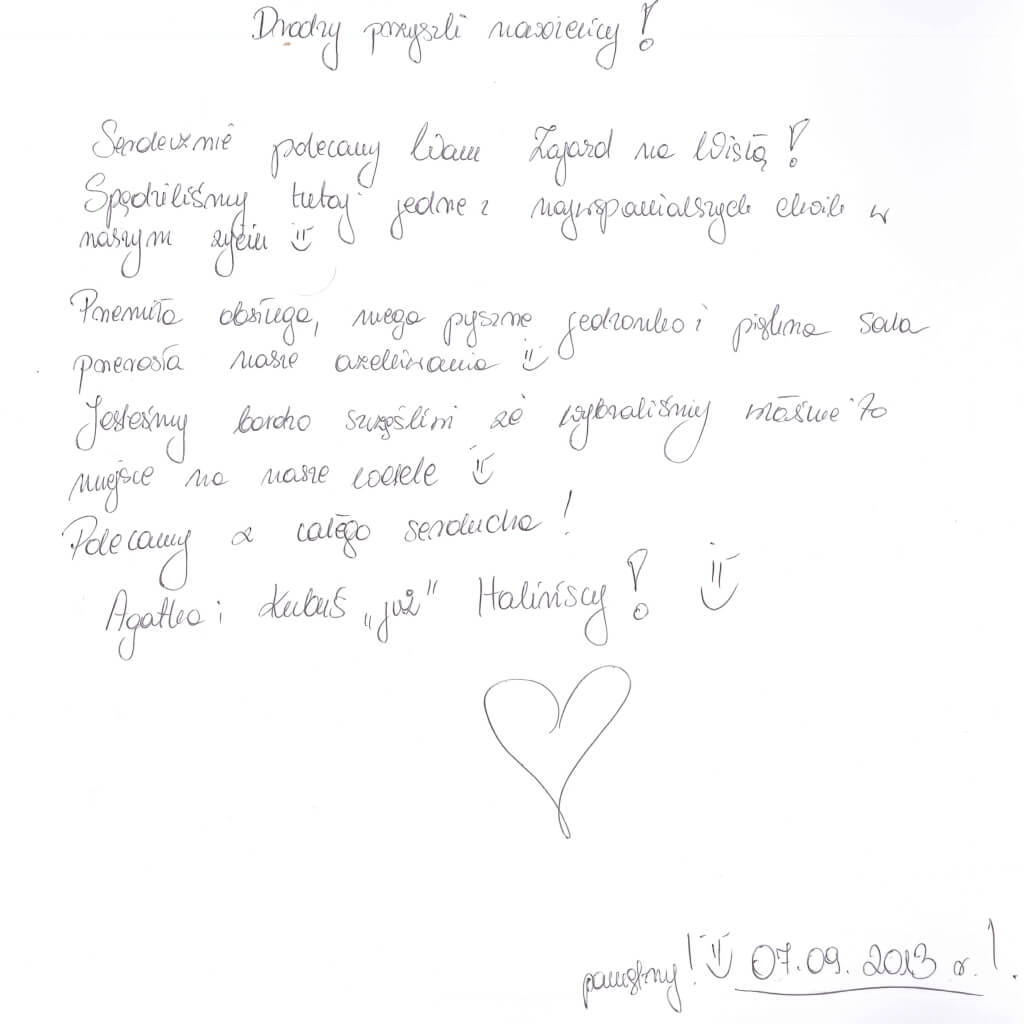 Drodzy przyszli narzeczeni!
Serdecznie polecamy Wam Zajazd na Wisłą!
Spędziliśmy tutaj jedne z najwspanialszych chwil w
naszym życiu :)
Przemiła obsługa, mega pyszne jedzonko i piękna sala
przerosła nasze oczekiwania :)
Jesteśmy bardzo szczęśliwi że wybraliśmy właśnie to
miejsce na nasze wesele :)
Polecamy z całego serducha!
Agatka i Kubuś „już" Halińscy! :)
pamiętny! :) 07.09.2013 r.!